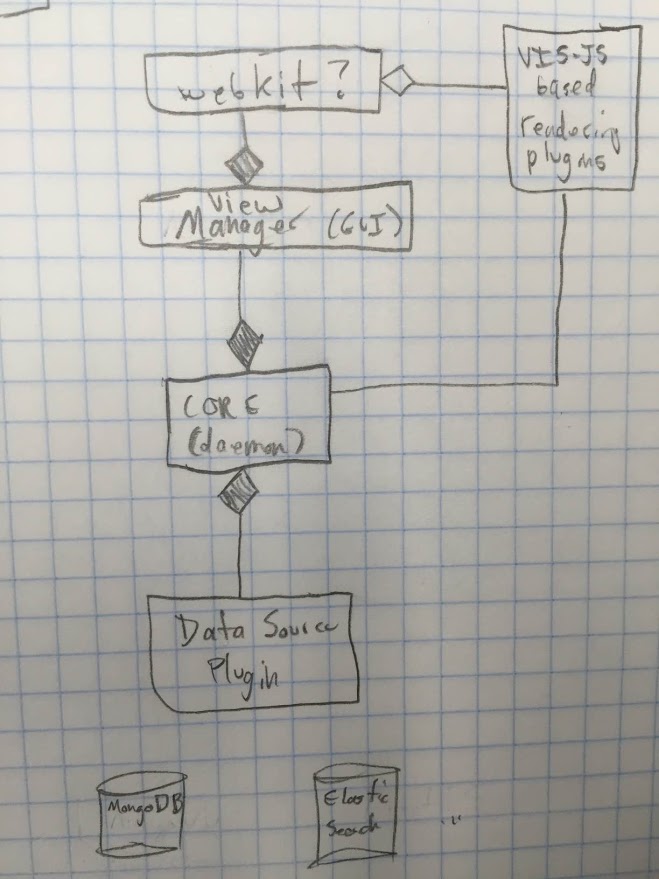 webkit?
VIS-JS
based
rendering
plugins
View
Manager (GUI)
CORE
(daemon)
Data Source
Plugin
MongoDB
Elastic
Search
...